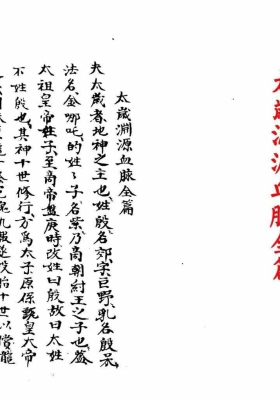 太歲淵源血脉全篇
太歲淵源血脉全篇
夫太歲者地神之主也姓殷名郊字巨野乳名殷呆
法名金哪吒的姓子子名葉乃商朝紂王之子也蓋
太祖皇帝姓子至商帝盤庚時改姓曰殷故曰太姓
不姓殷也其神十世修行方為太子原保甄皇大帝